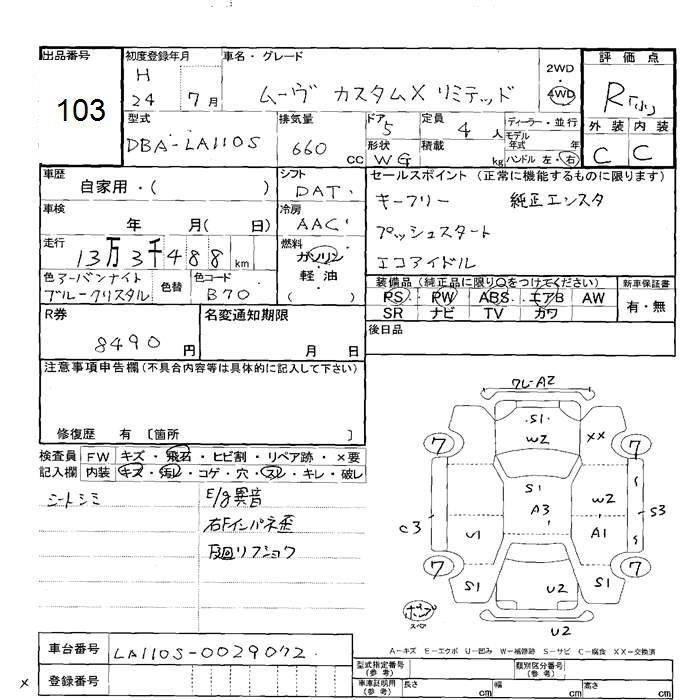 出品番号
103
初度登録年月
H
24 7月
車名・グレード
ムーヴ カスタムX リミテッド
2WD
・
4WD
評価点
R「小」
外装 内装
C C
型式
DBA-LA110S
排気量
660 cc
ドア 5
定員 4 人
形状 WG
積載 kg
ディーラー・並行
モデル年式 年
ハンドル 左・右
車歴
自家用・( )
シフト
DAT
セールスポイント (正常に機能するものに限ります)
キーフリー 純正エンスタ
プッシュスタート
エコアイドル
車検
年 月( 日)
冷房
AAC
走行
13万3千488km
燃料
ガソリン
軽油
( )
色 アーバンナイト
ブルークリスタル
色替
色コード
B70
装備品(純正品に限り○をつけてください)
PS PW ABS エアB AW
SR ナビ TV カワ
新車保証書
有・無
R券
8490円
名変通知期限
月 日
後日品
注意事項申告欄(不具合内容等は具体的に記入して下さい)
修復歴 有 〔箇所 〕
検査員 FW キズ・飛石・ヒビ割・リペア跡・×要
記入欄 内装 キズ・汚レ・コゲ・穴・スレ・キレ・破レ
シートシミ
E/g異音
右Fインパネ歪
下廻リフショク
フレ-A2
S1
W2
XX
7
7
S1
W2
C3
A3
S3
U1
A1
7
7
S1
U2
S1
U2
スペ
A-キズ E-エクボ U-凹み W-補修跡 S-サビ C-腐食 XX-交換済
車台番号
LA110S-0029072
登録番号
×
型式指定番号
(参考)
類別区分番号
(参考)
車庫証明用
(参考)
長さ cm
幅 cm
高さ cm